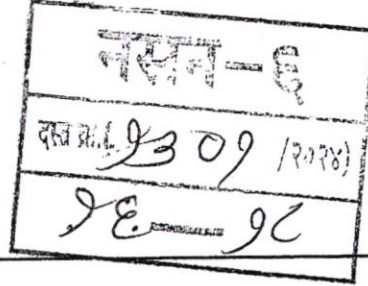 नसन-६
दस्त क्र.( १३०१ /२०२४)
१६—१८